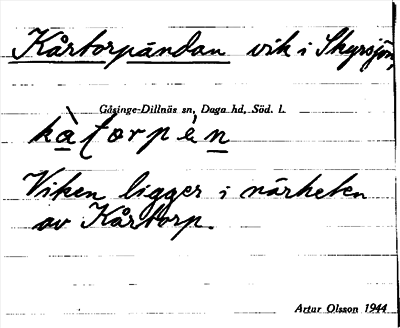 Kårtorpändan vik i Skyrsjön,
Gåsinge-Dillnäs sn, Daga hd, Söd. l.
Viken ligger i närheten
av Kårtorp.
Artur Olsson 1944